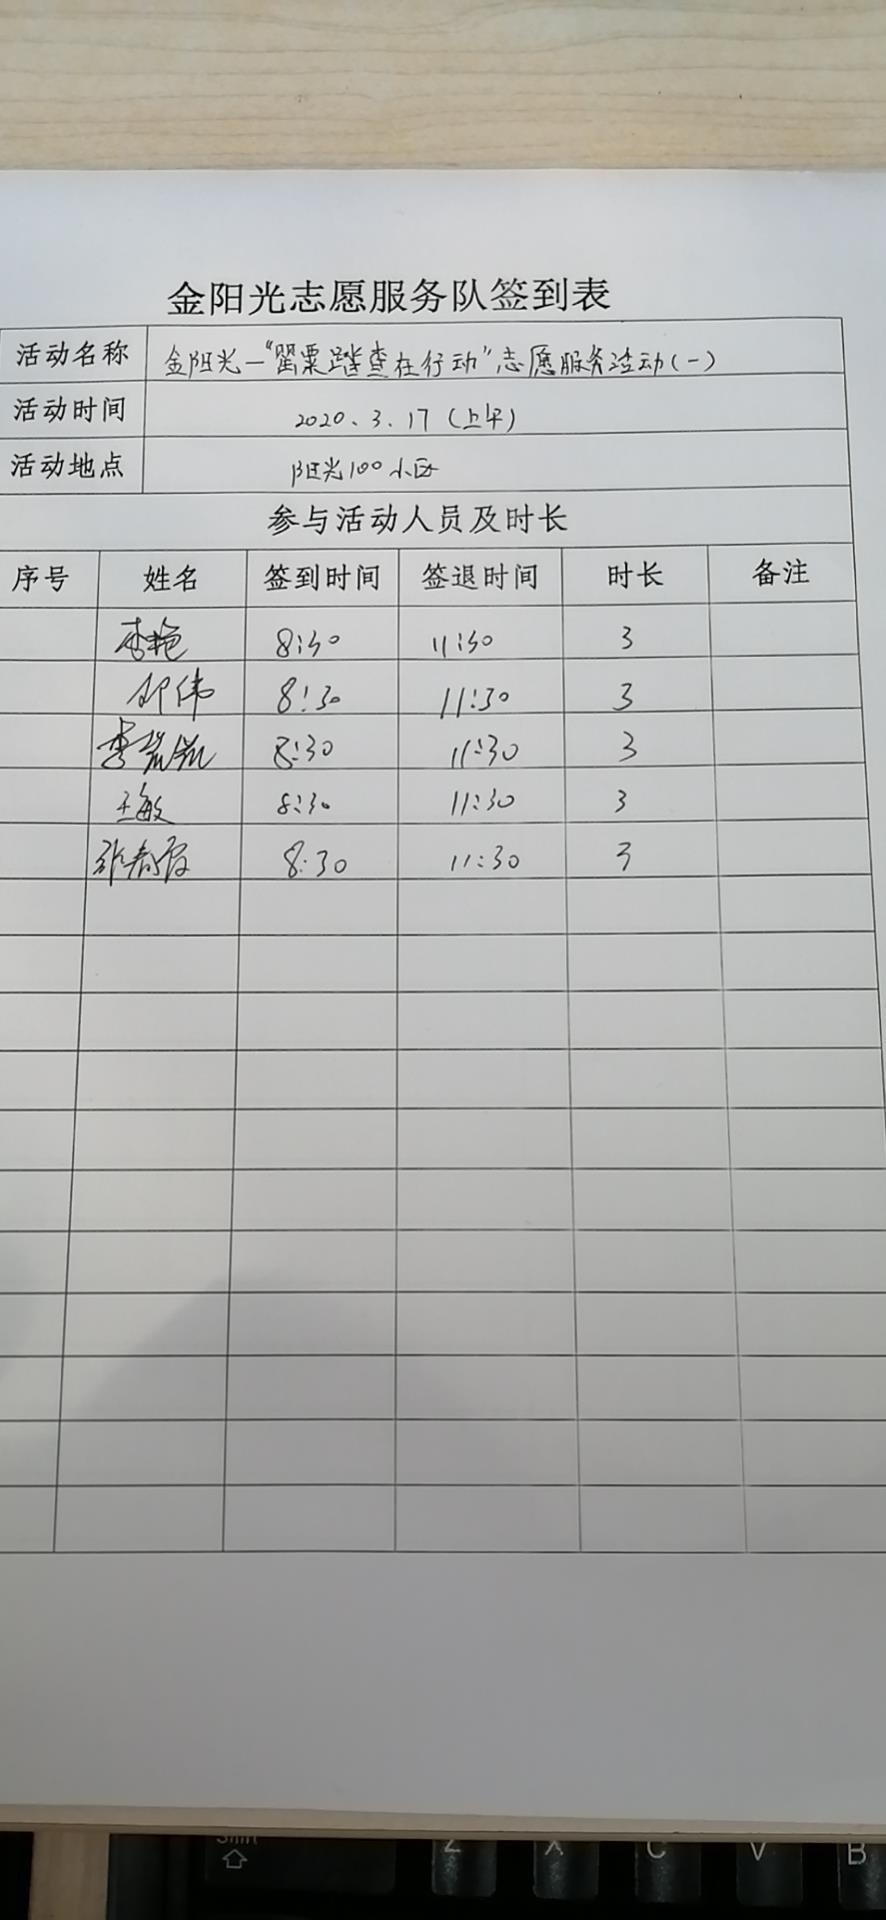 金阳光志愿服务队签到表
活动名称 金阳光—"罂粟踏查在行动"志愿服务活动(一)
活动时间 2020.3.17(上午)
活动地点 阳光100小区
参与活动人员及时长
序号 姓名 签到时间 签退时间 时长 备注
李艳 8:30 11:30 3
邹伟 8:30 11:30 3
李 8:30 11:30 3
王敏 8:30 11:30 3
张春霞 8:30 11:30 3
Shift Z X C V B